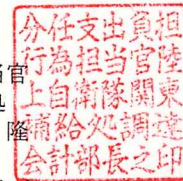 官
隆
分任支出負担
行為担当官陸
上自衛隊関東
補給処調達
会計部長之印